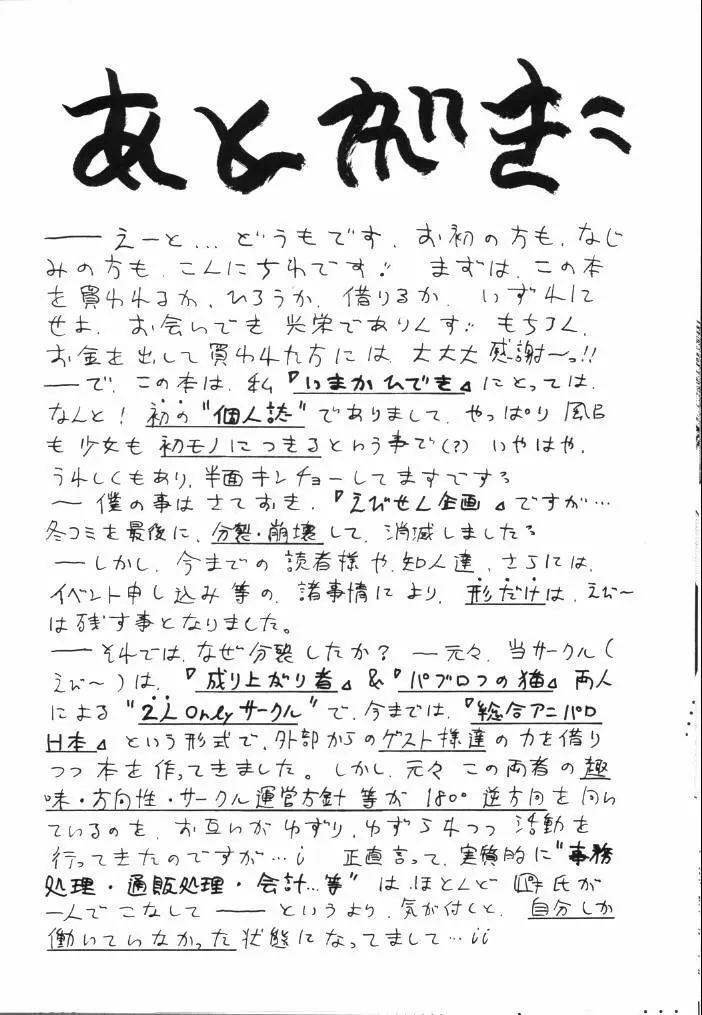 あとがき
―― えーと… どうもです. お初の方も, なじ
みの方も, こんにちわです!! まずは, この本
を買われるか, ひろうか, 借りるか, いずれに
せよ, お会いでき 光栄でありんす!! もちろん,
お金を出して買われた方には, 大大大 感謝〜っ!!
―で, この本は, 私『いまかひでき』にとっては,
なんと! 初の"個人誌"でありまして, やっぱり 風呂
も 少女も 初モノにつきるという事で(?) いやはや,
うれしくもあり, 半面 キンチョーしてますですよ
〜 僕の事は さておき, 『えびせん企画』ですが…
冬コミを最後に, 分裂・崩壊して, 消滅しましたよ
―しかし, 今までの 読者様や, 知人達, さらには,
イベント申し込み等の, 諸事情により, 形だけは, えび〜
は残す事となりました。
――それでは, なぜ分裂したか? ―元々, 当サークル(
えび〜)は, 『成り上がり者』&『パブロフの猫』両人
による "2人Onlyサークル"で, 今までは, 『総合アニパロ
H本』という形式で, 外部からのゲスト様達の力を借り
つつ 本を作ってきました。しかし, 元々 この両者の趣
味・方向性・サークル運営方針 等が 180° 逆方向を向い
ているのを, お互いが ゆずり, ゆずられつつ 活動を
行ってきたのですが…; 正直言って, 実質的に"事務
処理・通販処理・会計…等" は, ほとんど 氏が
一人でこなして ―― というより, 気が付くと, 自分しか
働いていなかった状態になってまして…;;